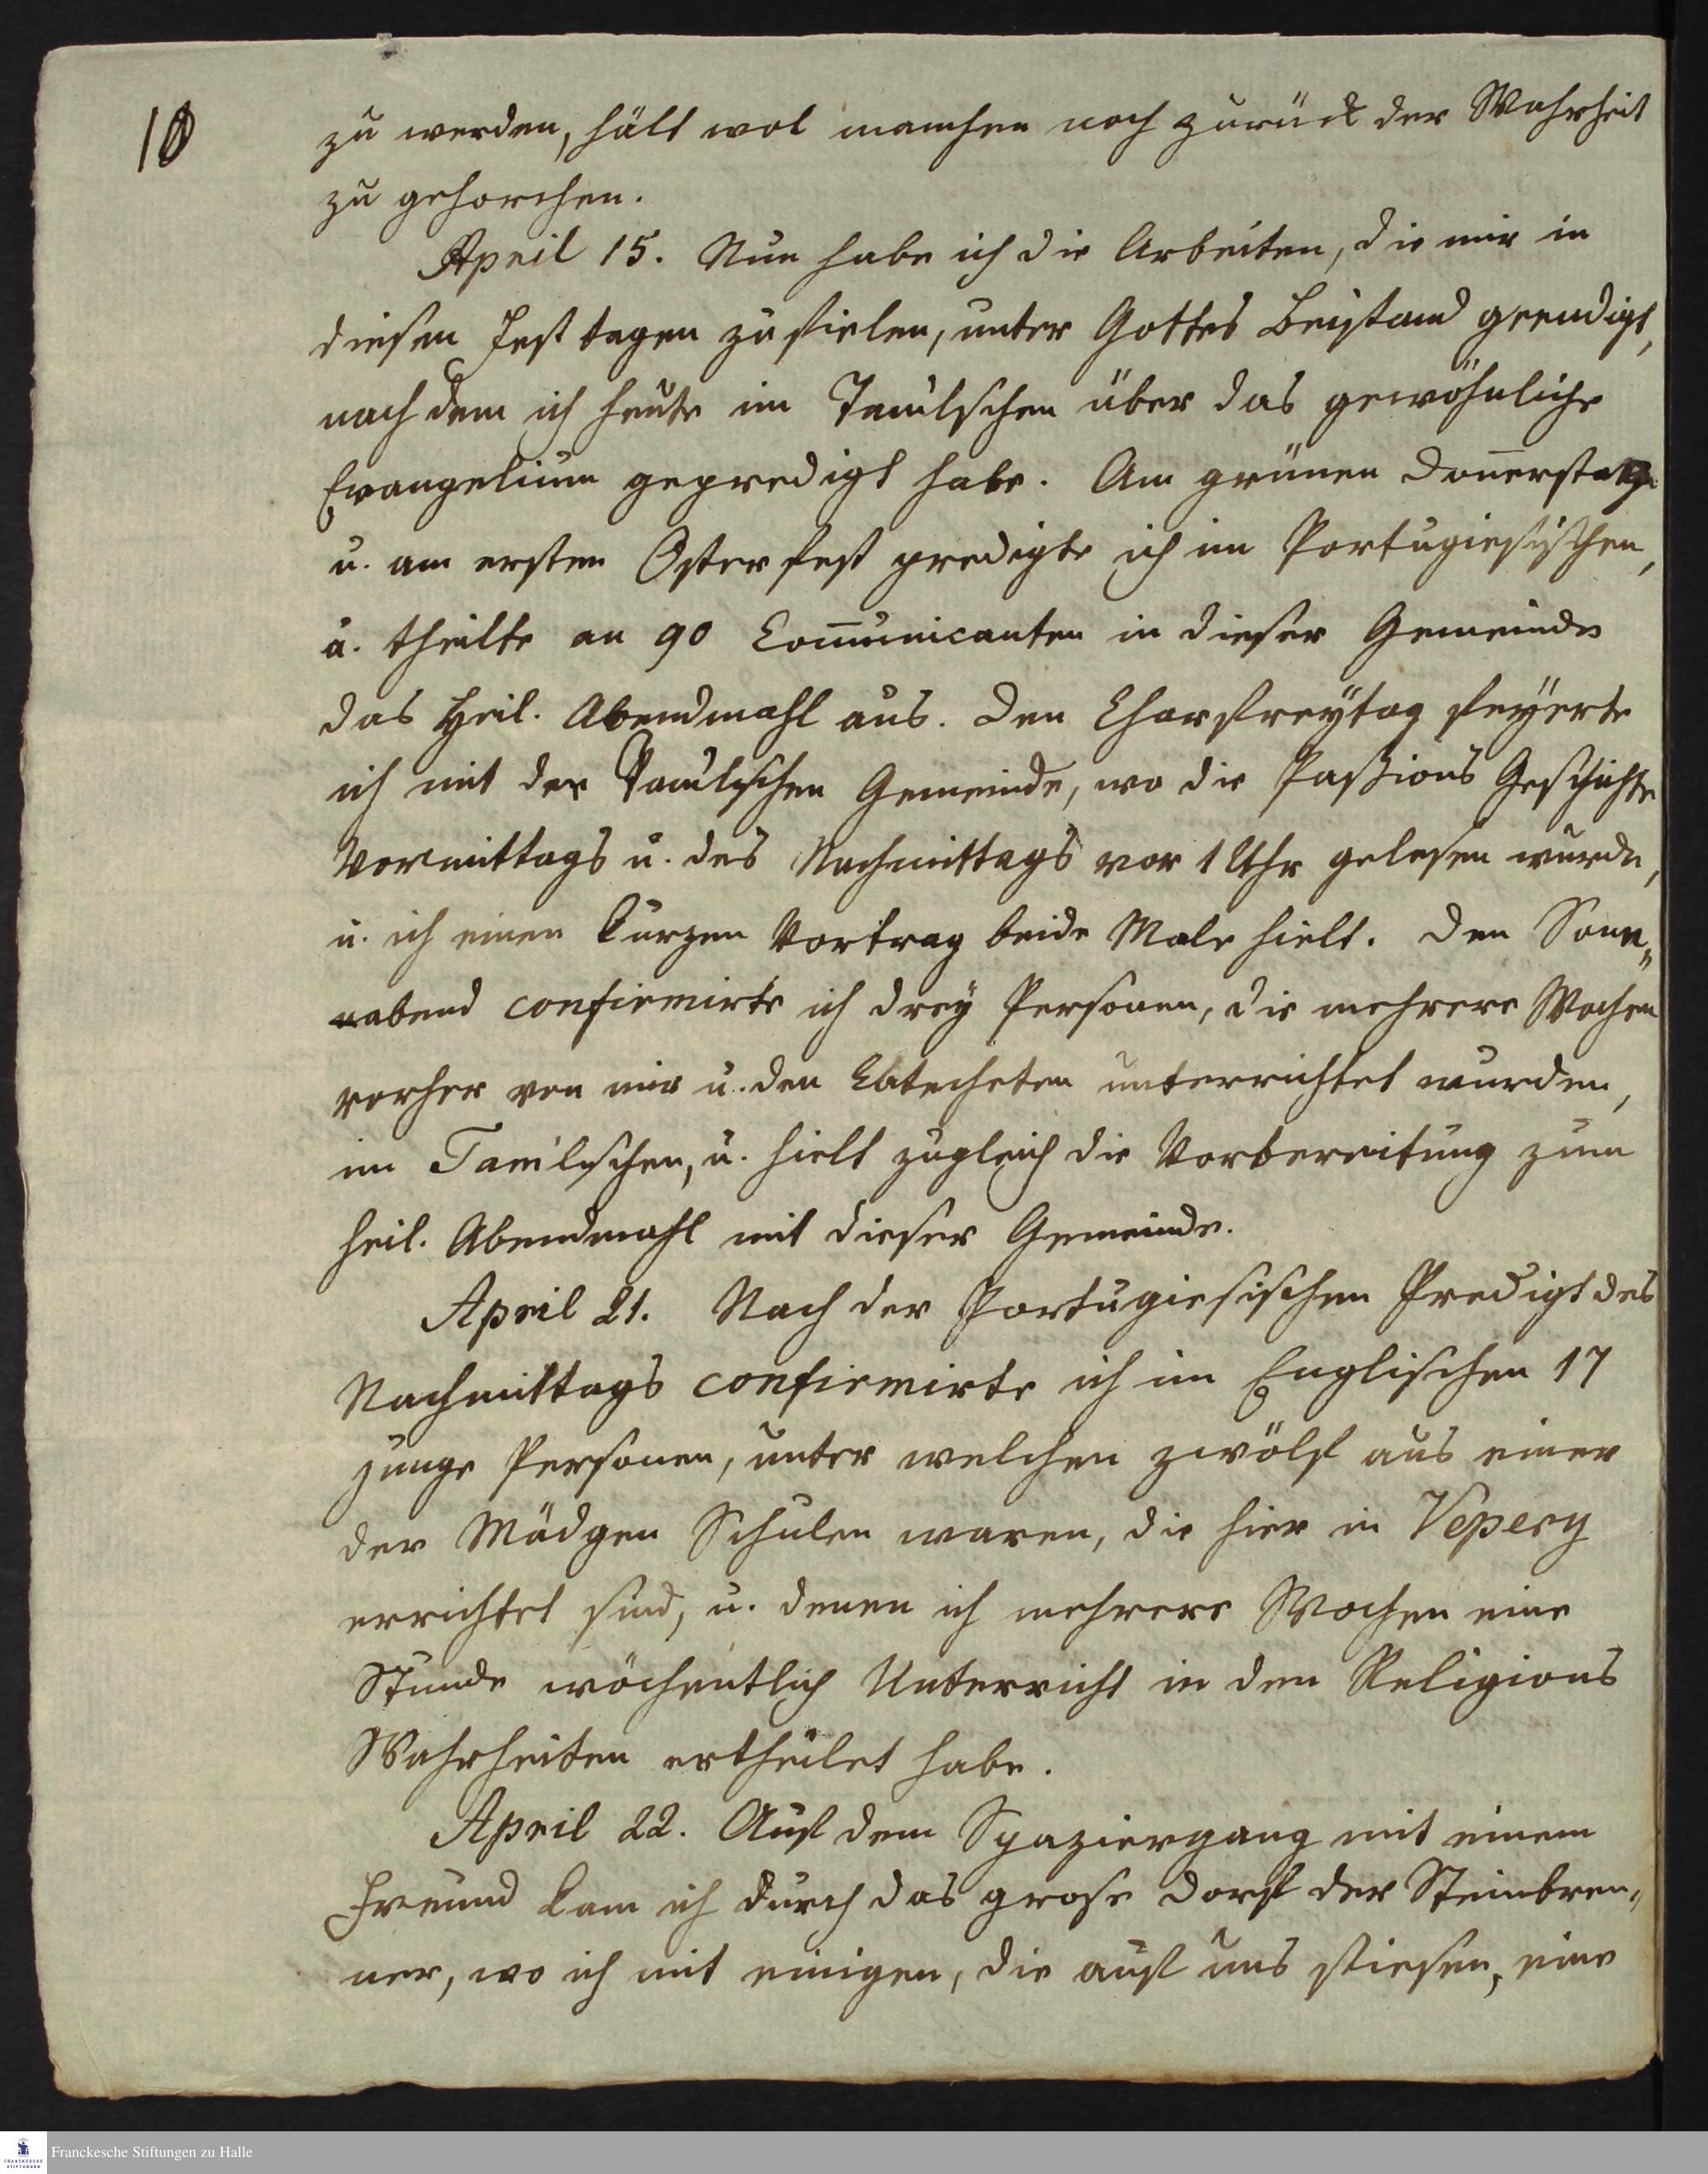 10
zu werden, hält wol manchen noch zurück der Wahrheit
zu gehorchen.
April 15. Nun habe ich die Arbeiten, die mir in
diesen Festtagen zufielen, unter Gottes Beistand geendigt,
nachdem ich heute im Tamulschen über das gewöhnliche
Evangelium gepredigt habe. Am grünen Don̄erstag
u. am ersten Osterfest predigte ich im Portugiesischen,
u. theilte an 90 Com̄unicanten in dieser Gemeinde
das Heil. Abendmahl aus. Den Charfreÿtag feÿerte
ich mit der Tamulschen Gemeinde, wo die Paßions Geschichte
Vormittags u. des Nachmittags vor 1 Uhr gelesen wurde,
u. ich einen kurzen Vortrag beide Male hielt. Den Sonn„
abend confirmirte ich dreÿ Personen, die mehrere Wochen
vorher von mir u. den Catecheten unterrichtet wurden,
im Tamilschen, u. hielt zugleich die Vorbereitung zum
heil. Abendmahl mit dieser Gemeinde.
April 21. Nach der Portugiesischen Predigt des
Nachmittags confirmirte ich im Englischen 17
junge Personen, unter welchen zwölf aus einer
der Mädgen Schulen waren, die hier in Vepery
errichtet sind, u. denen ich mehrere Wochen eine
Stunde wöchentlich Unterricht in den Religions
Wahrheiten ertheilet habe.
April 22. Auf dem Spaziergang mit einem
Freund kam ich durch das grose Dorf der Steinbren„
ner, wo ich mit einigen, die auf uns stiesen, eine
Franckesche Stiftungen zu Halle
FRANCKESCHE
STIFTUNGEN